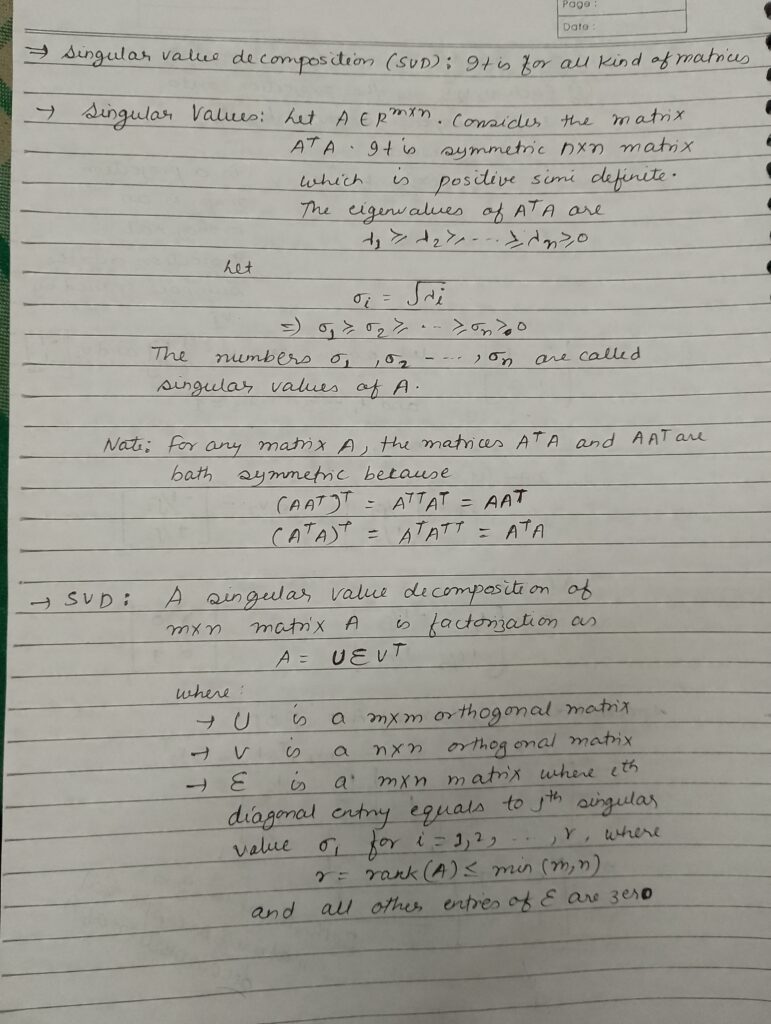 Page :
Date :
→ Singular value decomposition (SVD) : It is for all kind of matrices
→ Singular Values: Let A ∈ R^{m×n}. Consider the matrix
A^T A. It is symmetric n×n matrix
which is positive simi definite.
The eigenvalues of A^T A are
λ_1 ≥ λ_2 ≥ --- ≥ λ_n ≥ 0
Let
σ_i = √λ_i
⇒ σ_1 ≥ σ_2 ≥ -- ≥ σ_n ≥ 0
The numbers σ_1 , σ_2 ---- , σ_n are called
singular values of A.
Note: For any matrix A, the matrices A^T A and AA^T are
both symmetric because
(AA^T)^T = A^{TT}A^T = AA^T
(A^T A)^T = A^T A^{TT} = A^T A
→ SVD : A singular value decomposition of
m×n matrix A is factorization as
A = UΣV^T
where :
→ U is a m×m orthogonal matrix
→ V is a n×n orthogonal matrix
→ Σ is a m×n matrix where ith
diagonal entry equals to ith singular
value σ_i for i = 1,2, . . . , r, where
r = rank(A) ≤ min (m,n)
and all other entries of Σ are zero